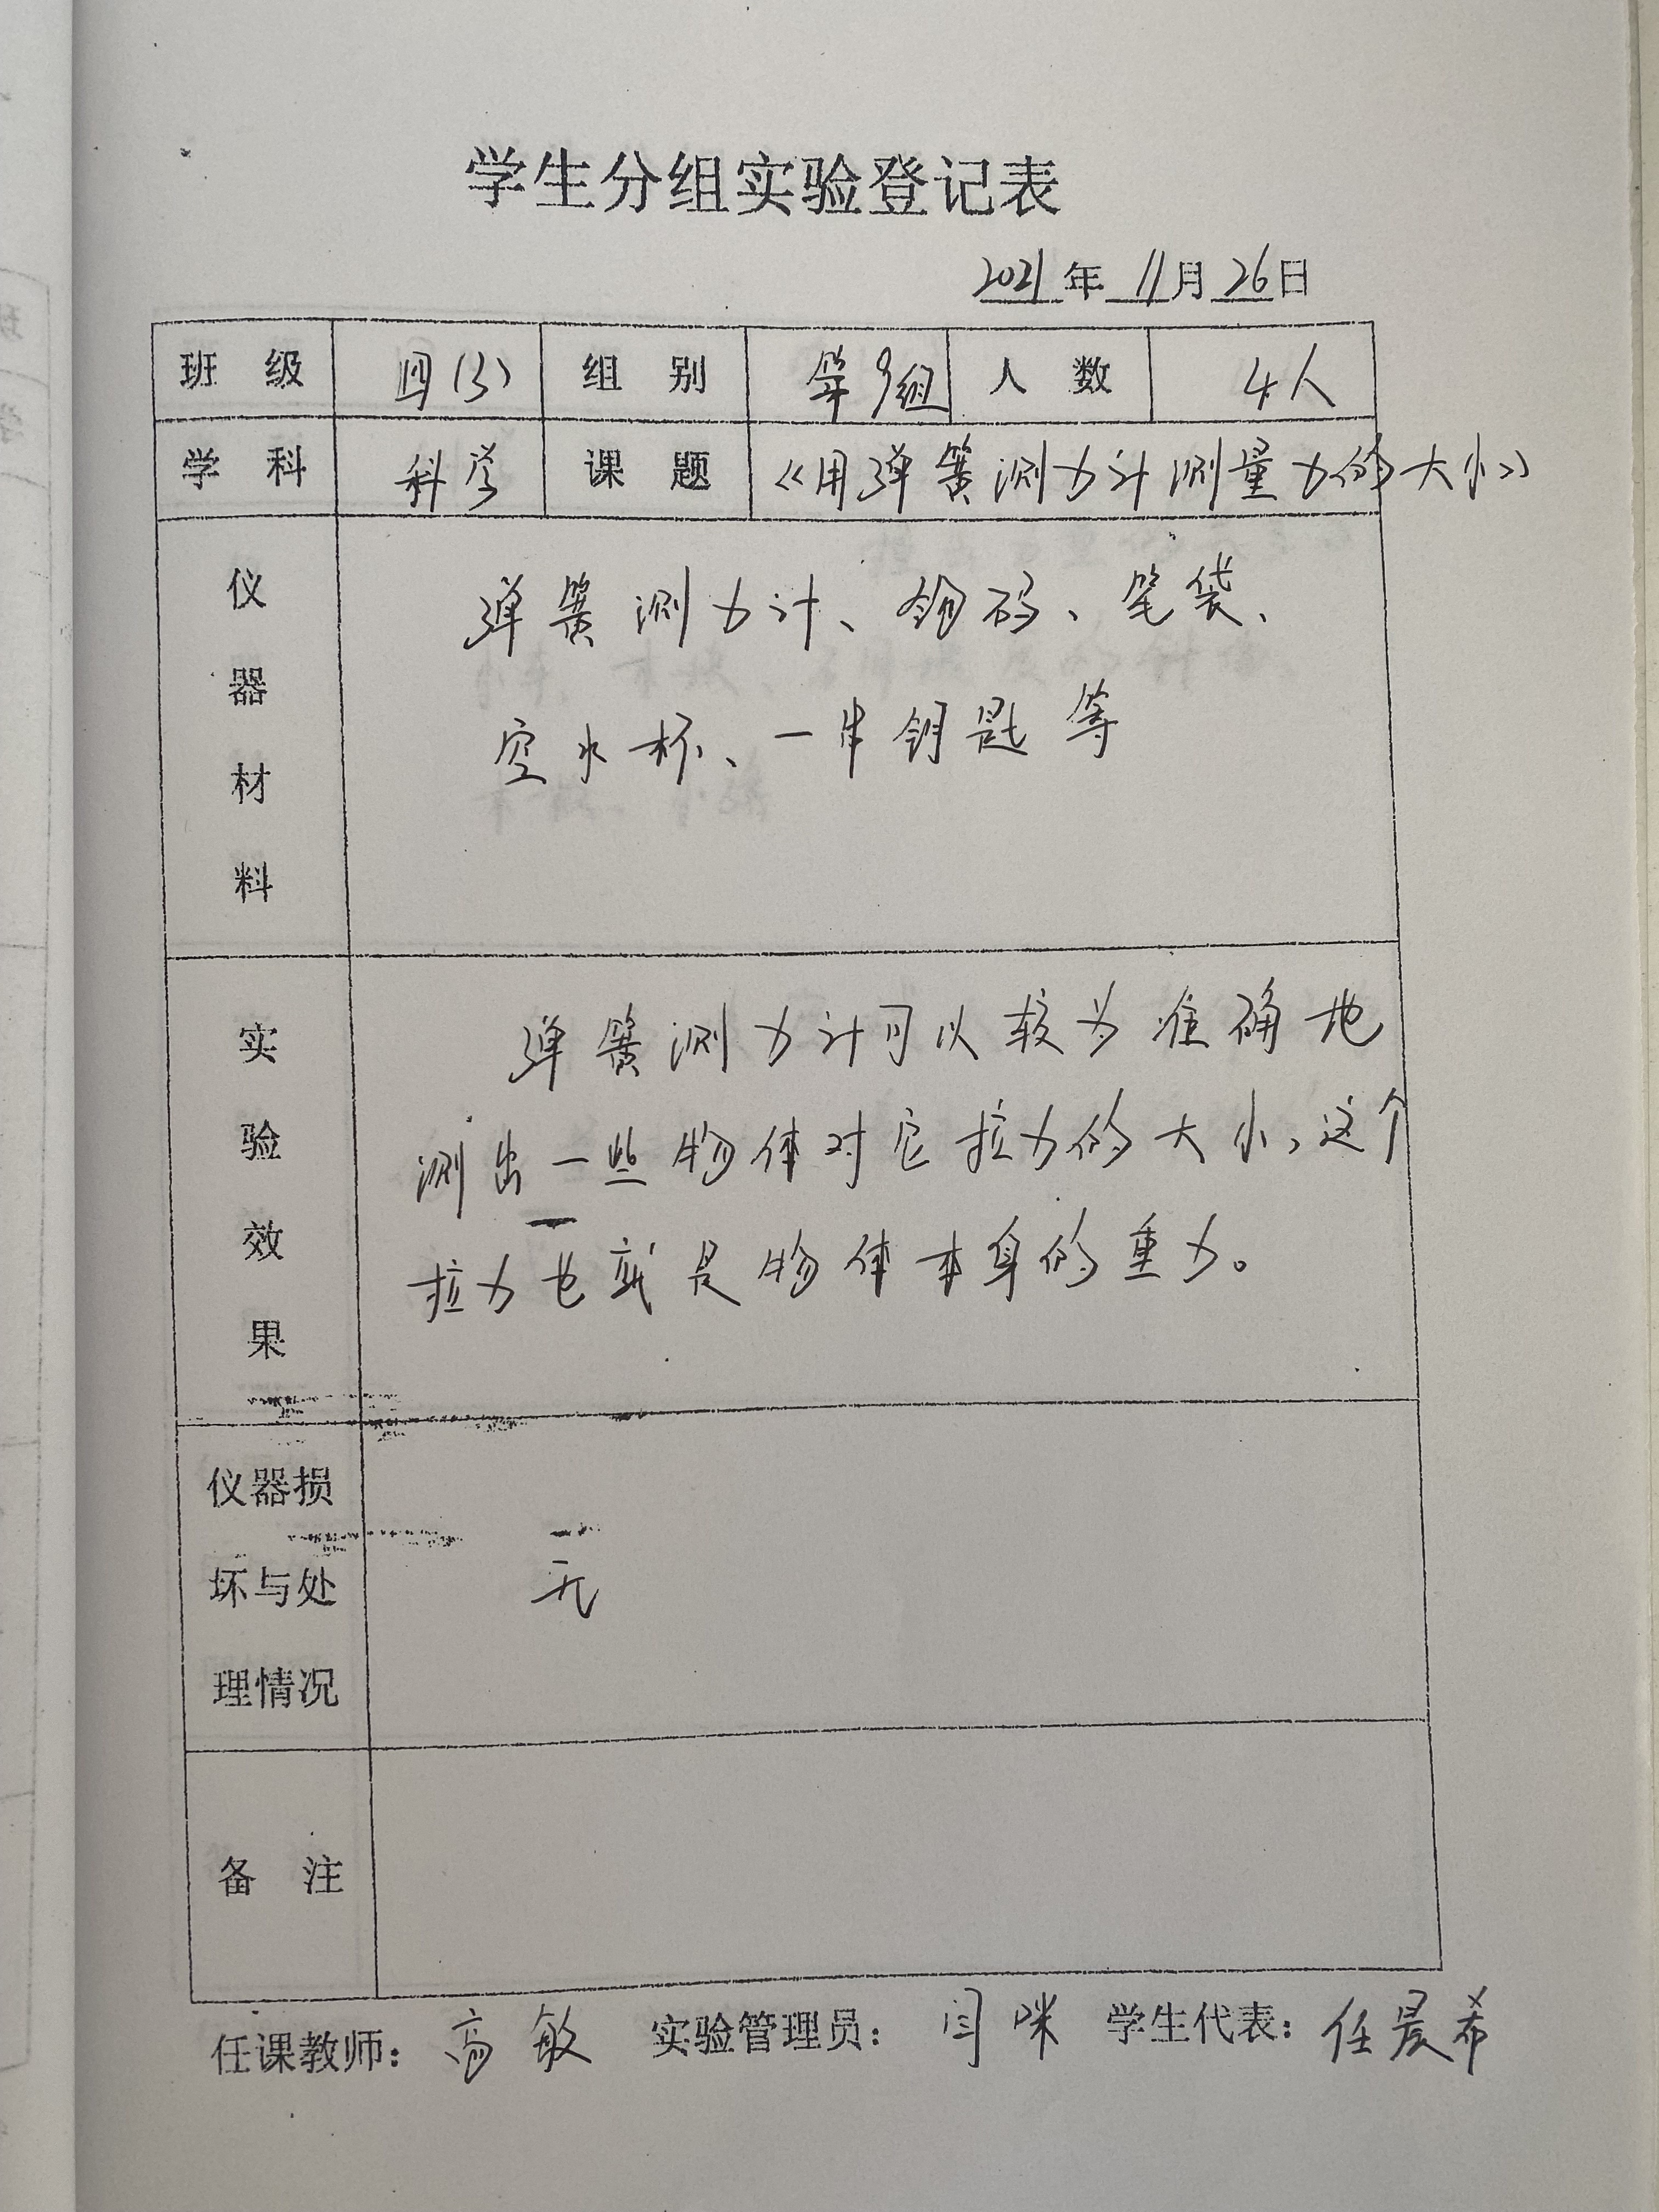 学生分组实验登记表
2021年 11月 26日
班 级 四(3) 组 别 第9组 人 数 4人
学 科 科学 课 题 《用弹簧测力计测量力的大小》
仪器材料
弹簧测力计、钩码、笔袋、
空水杯、一串钥匙等
实验效果
弹簧测力计可以较为准确地
测出一些物体对它拉力的大小,这个
拉力也就是物体本身的重力。
仪器损
坏与处
理情况
无
备 注
任课教师: 高敏 实验管理员: 闫咪 学生代表: 任晨希